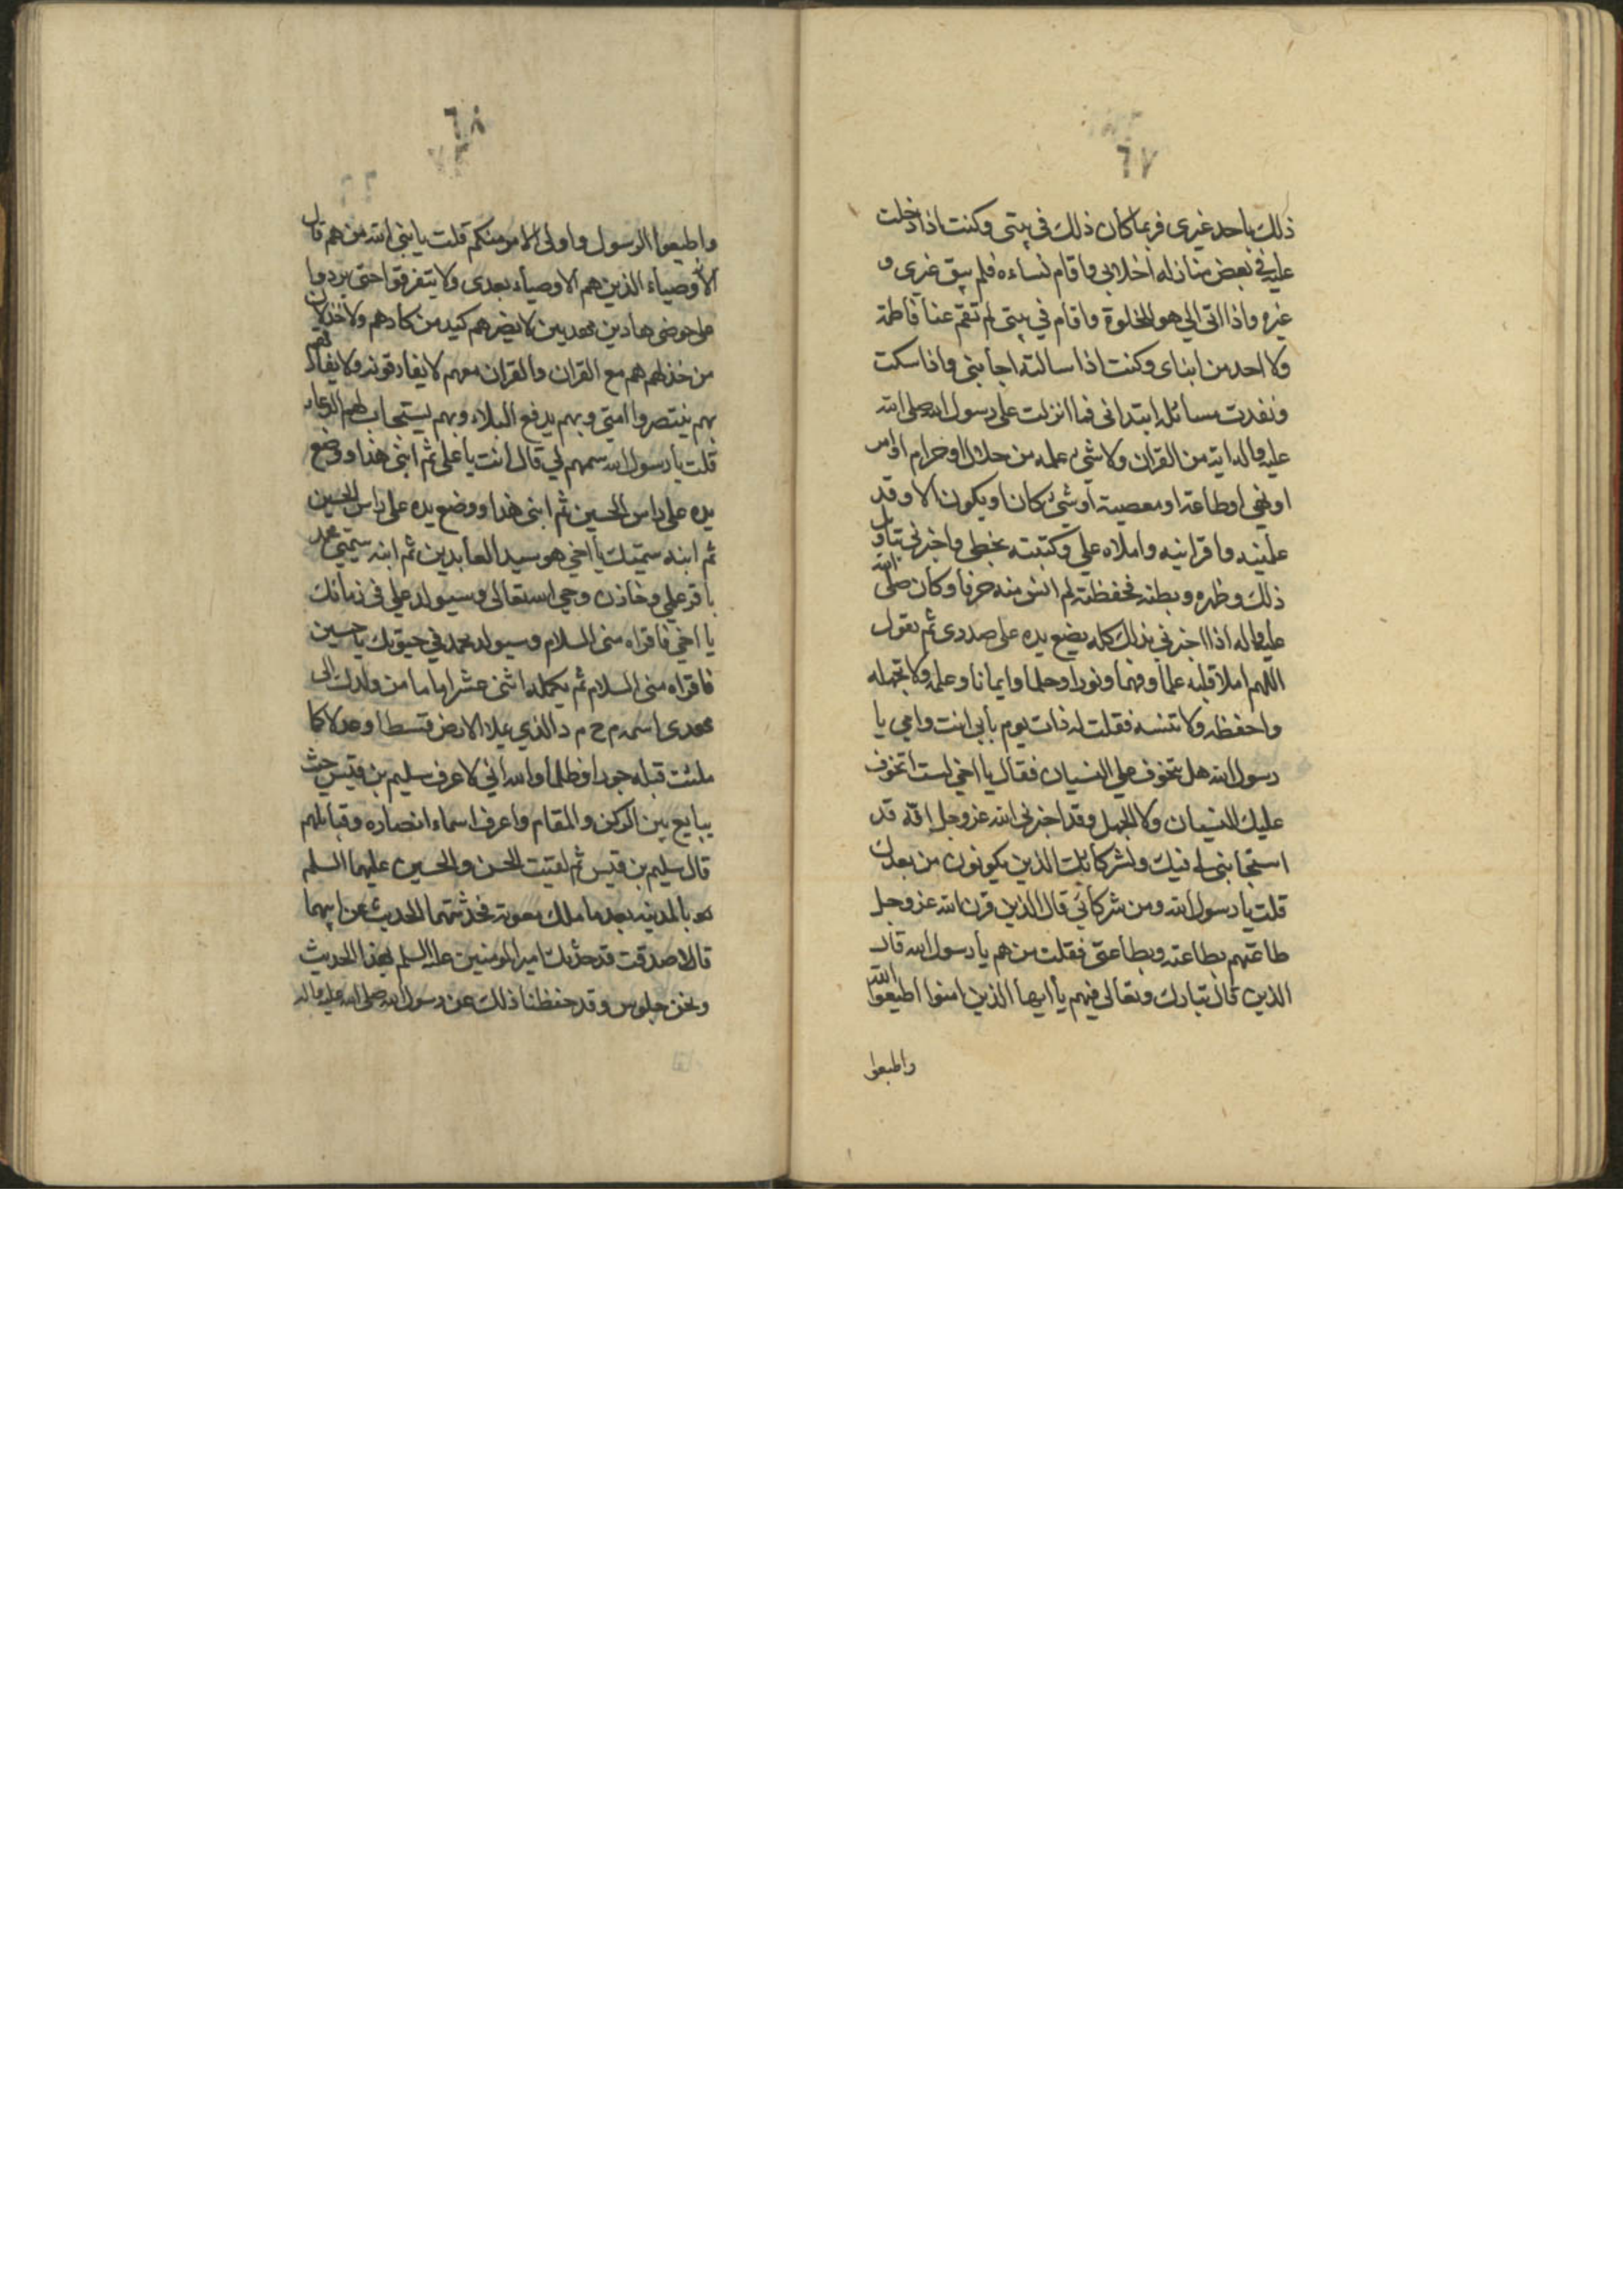 ٦٧
ذلك باحد غيري فربما كان ذلك في بيتي وكنت اذا دخلت
عليه في بعض منازله اخلا بي واقام نساءه فلم يبق غيري و
غيره واذا اتى الي هو للخلوة واقام في بيتي لم تقم عنا فاطمة
ولا احد من ابناى وكنت اذا سالته اجابني واذا سكت
ونفدت مسائله ابتداني فما انزلت على رسول الله صلى الله
عليه واله اية من القران ولا شيء علمه من حلال او حرام او امر
او نهي او طاعة او معصية او شيء كان او يكون الا وقد
علمنيه واقرانيه واملاه علي وكتبته بخطي واخبرني بتاويل
ذلك وظهره وبطنه فحفظته لم انس منه حرفا وكان صلى الله
عليه واله اذا اخبرني بذلك كله يضع يده على صدري ثم يقول
اللهم املا قلبه علما وفهما ونورا وحلما وايمانا وعلمه ولا تجهله
واحفظه ولا تنسه فقلت له ذات يوم بابي انت وامي يا
رسول الله هل تتخوف علي النسيان فقال يا اخي لست اتخوف
عليك النسيان ولا الجهل وقد اخبرني الله عز وجل انه قد
استجابني فيك ولشركائك الذين يكونون من بعدك
قلت يا رسول الله ومن شركائي قال الذين قرن الله عز وجل
طاعتهم بطاعته وبطاعتي فقلت من هم يا رسول الله قال
الذين قال تبارك وتعالى فيهم يا ايها الذين امنوا اطيعوا الله
واطيعوا
٦٨
واطيعوا الرسول واولى الامر منكم قلت يا نبي الله من هم قال
الاوصياء الذين هم الاوصياء بعدى ولا يتفرقوا حتى يردوا
على حوضى هادين مهديين لا يضرهم كيد من كادهم ولا خذلان
من خذلهم هم مع القران والقران معهم لا يفارقونه ولا يفارقهم
بهم ينتصروا امتي وبهم يدفع البلاء وبهم يستجاب لهم الدعاء
قلت يا رسول الله سمهم لي قال انت يا على ثم ابني هذا ووضع
يده على راس الحسين ثم ابنى هذا ووضع يده على راس الحسين
ثم ابنه سميك يا اخي هو سيد العابدين ثم ابنه سميي محمد
باقر علمي وخازن وحي الله تعالى وسيولد علي في زمانك
يا اخي فاقراه مني السلام وسيولد محمد في حيوتك يا حسين
فاقراه مني السلام ثم يكمله اثني عشر اماما من ولدك الى
مهدى اسمه م ح م د الذي يملا الارض قسطا وعدلا كما
ملئت قبله جورا وظلما والله اني لاعرف سليم بن قيس حيث
يبايع بين الركن والمقام واعرف اسماء انصاره وقبائلهم
قال سليم بن قيس ثم لقيت الحسن والحسين عليهما السلم
بالمدينه بعد ما ملك معوية فحدثتهما الحديث عن ابيهما
قالا صدقت قد حدثك امير المومنين عليه السلم بهذا الحديث
ونحن جلوس وقد حفظنا ذلك عن رسول الله صلى الله عليه واله